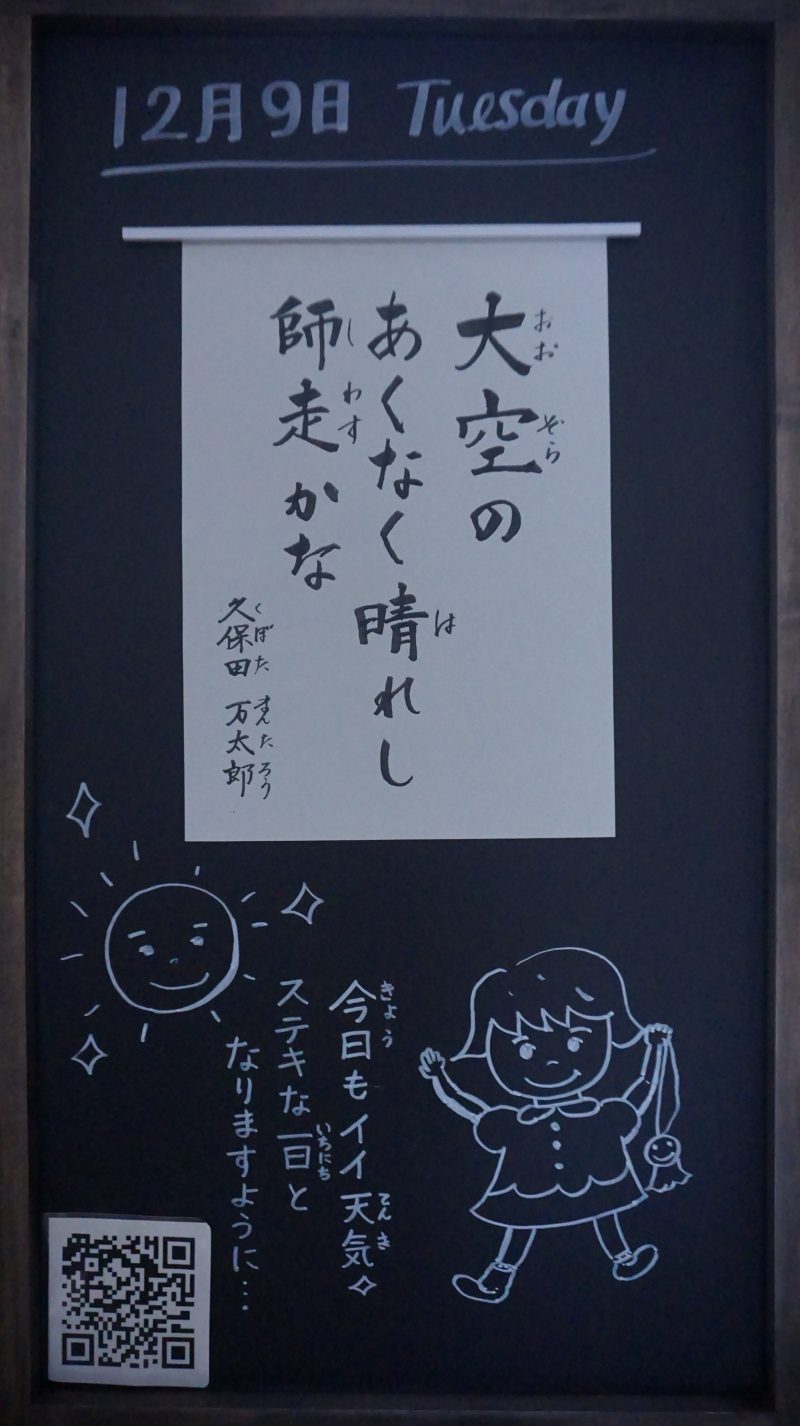 12月9日 Tuesday
大空の
おおぞら
あくなく晴れし
は
師走かな
しわす
久保田 万太郎
くぼた まんたろう
今日もイイ天気
きょう てんき
ステキな一日と
いちにち
なりますように…